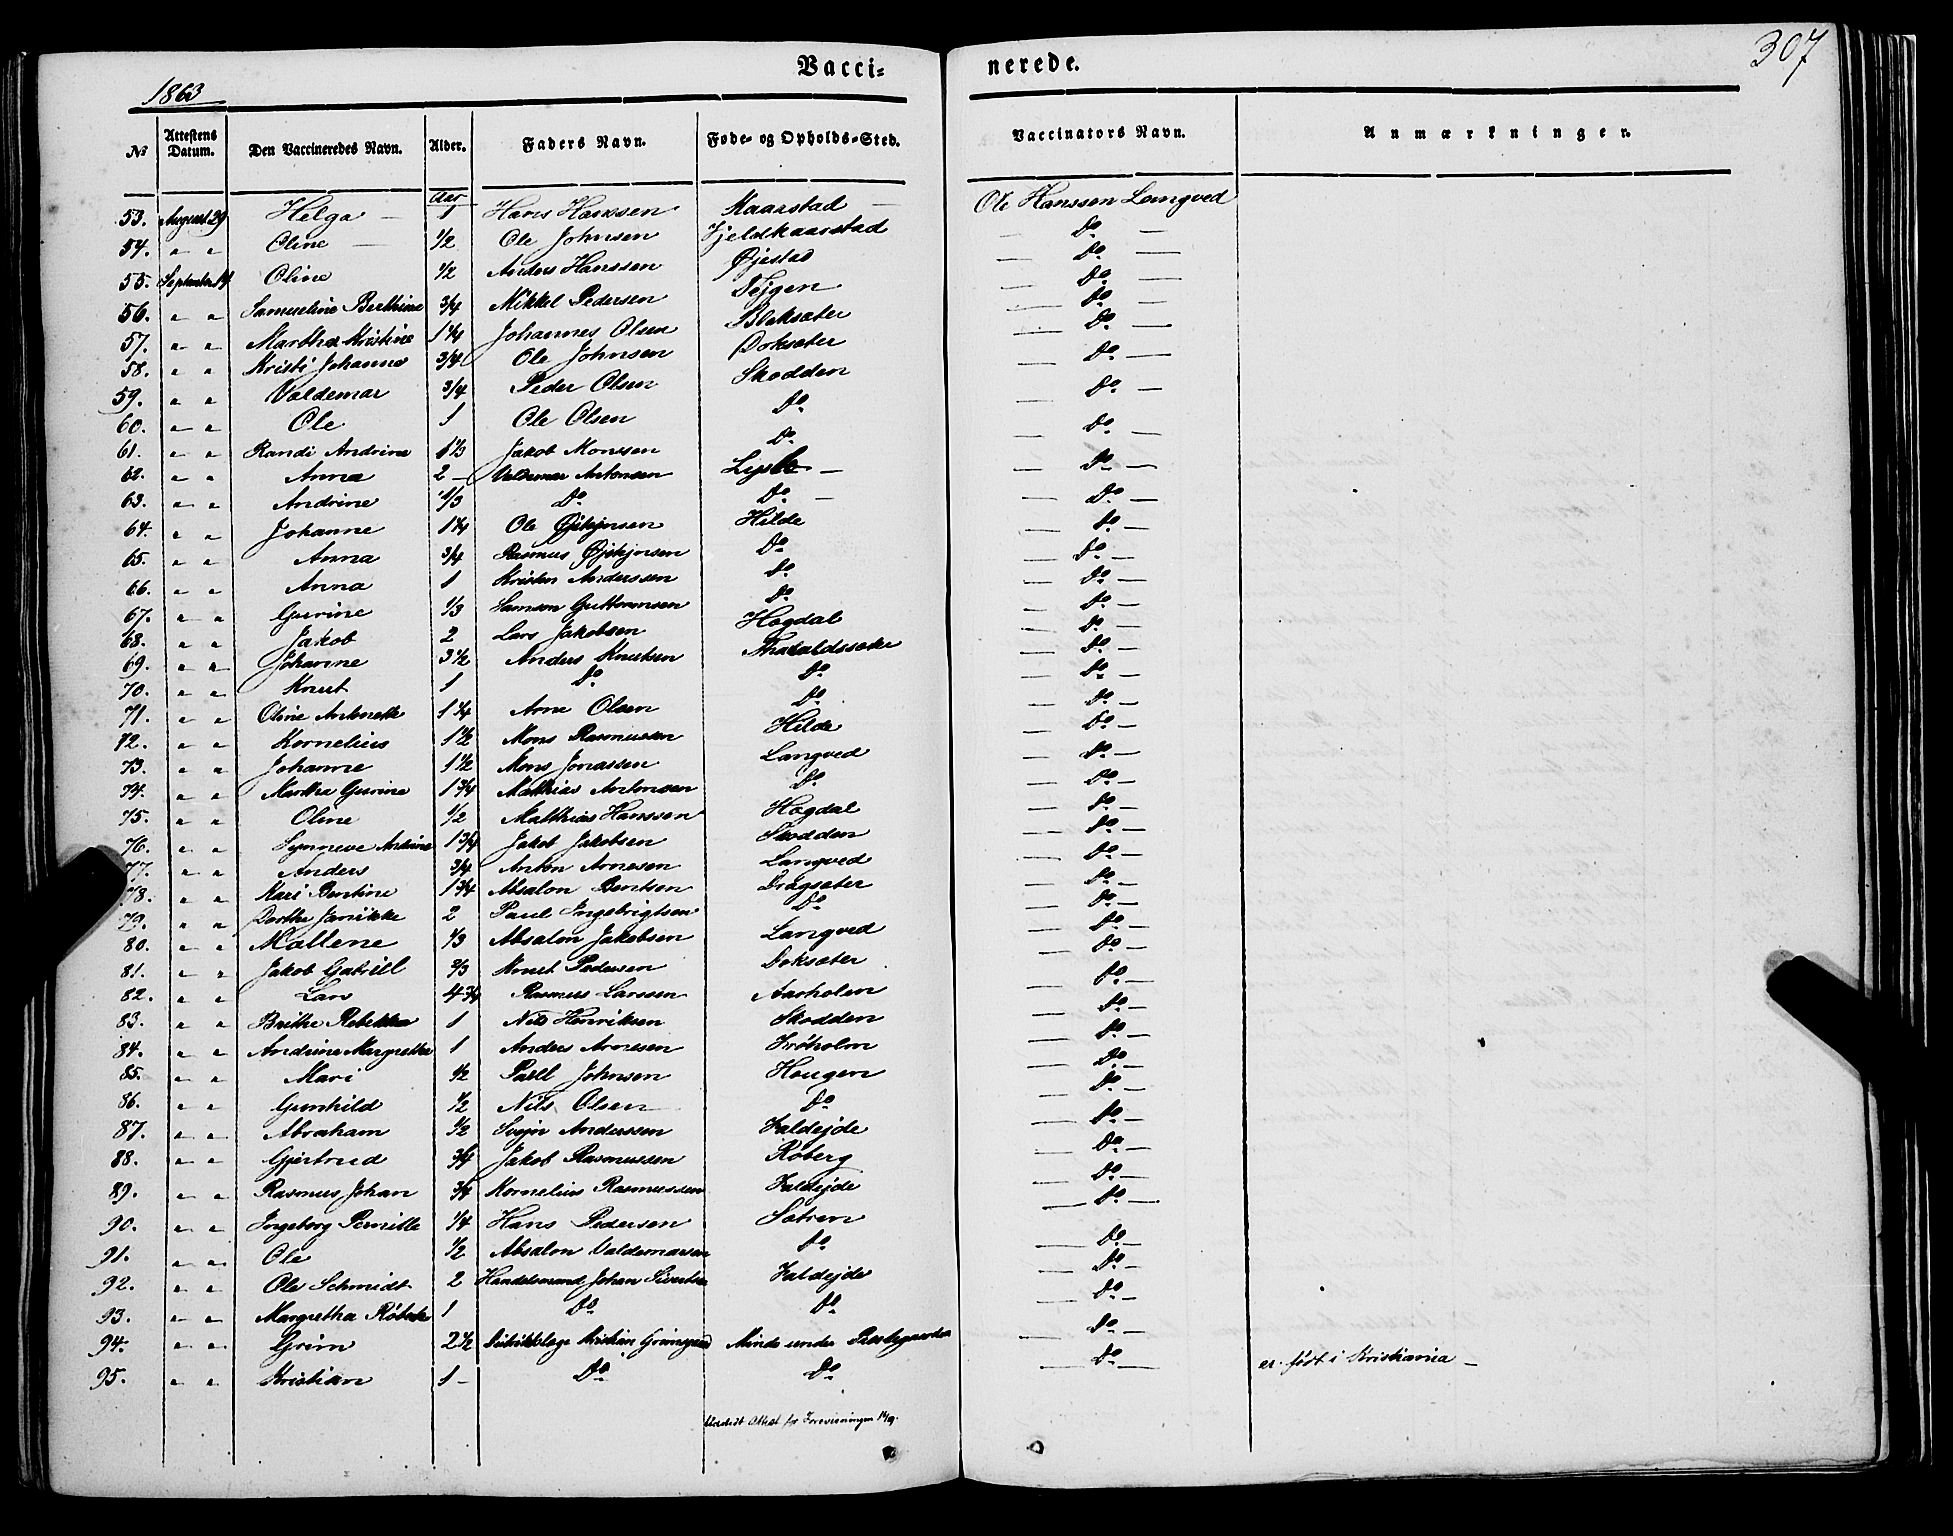 Vacci- nerede.
307
1863
No Attestens Datum. Den Vaccineredes Navn. Alder. Faders Navn. Føde- og Opholds-Sted. Vaccinators Navn. Anmærkninger.
Aar
53. August 29 Helga — 1 Hans Hanssen Kaarstad — Ole Hanssen Langved
54. " " Oline — 1/2 Ole Johnsen Fjeldkaarstad — Do —
55. September 14 Oline 1/2 Anders Hanssen Øjestad — Do —
56. " " Samueline Berthine 3/4 Mikkel Pedersen Dejgen — Do —
57. " " Martha Kristine 1 1/4 Johannes Olsen — Do —
58. " " Kristi Johanne 3/4 Ole Johnsen Doksæter — Do —
59. " " Valdemar 3/4 Peder Olsen Skodden — Do —
60. " " Ole 1 Ole Olsen Do — Do —
61. " " Randi Andrine 1 1/3 Jakob Monssen Do — Do —
62. " " Anna 2 — Valdemar Antonsen — Do —
63. " " Andrine 1/3 Do Do — — Do —
64. " " Johanne 1 1/4 Ole Hilde — Do —
65. " " Anna 3/4 Rasmus Do — Do —
66. " " Anna 1 Kristen Anderssen Do — Do —
67. " " Gurine 1/3 Samson Guttormsen Do — Do —
68. " " Jakob 2 Lars Jakobsen Hogdal — Do —
69. " " Johanne 3 1/2 Anders Knutsen — Do —
70. " " Knut 1 Do Do — Do —
71. " " Oline Antonette 1 1/4 Arne Olsen Do — Do —
72. " " Kornelius 1 1/2 Mons Rasmussen Hilde — Do —
73. " " Johanne 1 1/2 Mons Jonassen Langved — Do —
74. " " Martha Gurine 1 3/4 Matthias Antonsen Do — Do —
75. " " Oline 1/2 Matthias Hanssen Hogdal — Do —
76. " " Synneve Andrine 1 3/4 Jakob Jakobsen Skodden — Do —
77. " " Anders 3/4 Anton Arnesen Langved — Do —
78. " " Kari Bentine 1 3/4 Absalon Bentsen Dragsæter — Do —
79. " " Dorthe Janikke 2 Paul Ingebrigtsen Do — Do —
80. " " Mallene 1/3 Absalon Jakobsen Langved — Do —
81. " " Jakob Gabriell 2/3 Knut Pedersen Doksæter — Do —
82. " " Lars 4 3/4 Rasmus Larssen Aarholen — Do —
83. " " Brithe Rebekka 1 Nils Henriksen Skodden — Do —
84. " " Andrine Margrethe 1 Anders Arnesen Frøholm — Do —
85. " " Mari 1/2 Paell Johnsen Hougen — Do —
86. " " Gunhild 1/2 Nils Olsen Do — Do —
87. " " Abraham 1/2 Svejn Anderssen Faldejde — Do —
88. " " Gjertrud 3/4 Jakob Rasmussen Røberg — Do —
89. " " Rasmus Johan 3/4 Kornelius Rasmussen Faldejde — Do —
90. " " Ingeborg Pernille 1/4 Hans Pedersen Sætren — Do —
91. " " Ole 1/2 Absalon Valdemarsen Do — Do —
92. " " Ole Schmidt 2 Handelsmand Johan Sivertsen Faldejde — Do —
93. " " Margretha 1 Do Do — Do —
94. " " Grim 2 1/2 Distriktslæge Kristian Minde under Præstegaarden — Do —
95. " " Kristian 1 — Do Do — Do — er født i Kristiania —
Udstedt Attest for